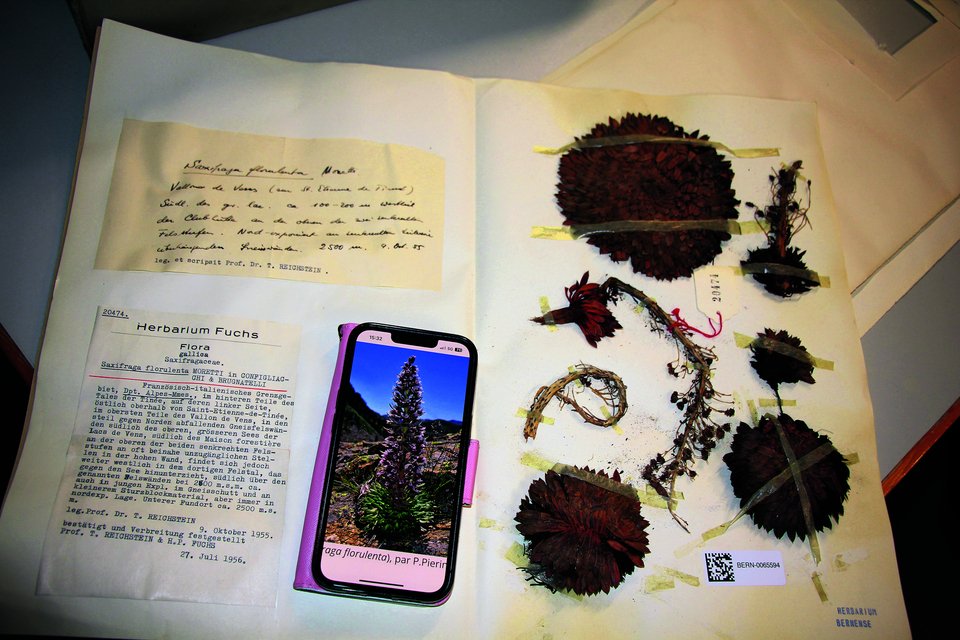 Saxifraga florulenta Moretti
Vallon de Vens (sur St. Etienne de Tinée)
Südl. des gr. lac. ca 100-200 m westlich
der Clubhütte an der oberen der zwei untersten
Felsstufen. Nord exponiert an
überhängenden Gneiswänden. 2500 m. 9. Oct. 55
leg. et scripsit Prof. Dr. T. REICHSTEIN.
20474.
Herbarium Fuchs
Flora
gallica
Saxifragaceae.
Saxifraga florulenta MORETTI in CONFIGLIAC-
CHI & BRUGNATELLI
Französisch-italienisches Grenzge-
biet, Dpt. Alpes-Mmes., im hinteren Teile des
Tales der Tinée, auf deren linker Seite,
östlich oberhalb von Saint-Etienne-de-Tinée,
im obersten Teile des Vallon de Vens, in den
steil gegen Norden abfallenden Gneisfelswän-
den südlich des oberen, grösseren Sees der
Lacs de Vens, südlich des Maison forestière
an der oberen der beiden senkrechten Fels-
stufen an oft beinahe unzugänglichen Stel-
len in der hohen Wand, findet sich jedoch
weiter westlich in dem dortigen Felstal, das
gegen den See hinunterzieht, südlich über den
genannten Felswänden bei 2600 m.s.m. ca.
auch in jungen Expl. im Gneisschutt und an
kleinerem Sturzblockmaterial, aber immer in
nordexp. Lage. Unterer Fundort ca. 2500 m.s.
m.
leg. Prof. Dr. T. REICHSTEIN
9. Oktober 1955.
bestätigt und Verbreitung festgestellt
Prof. T. REICHSTEIN & H.P. FUCHS
27. Juli 1956.
15:32
5G
raga florulenta), par P.Pierin
20474
BERN-0065594
HERBARIUM
BERNENSE